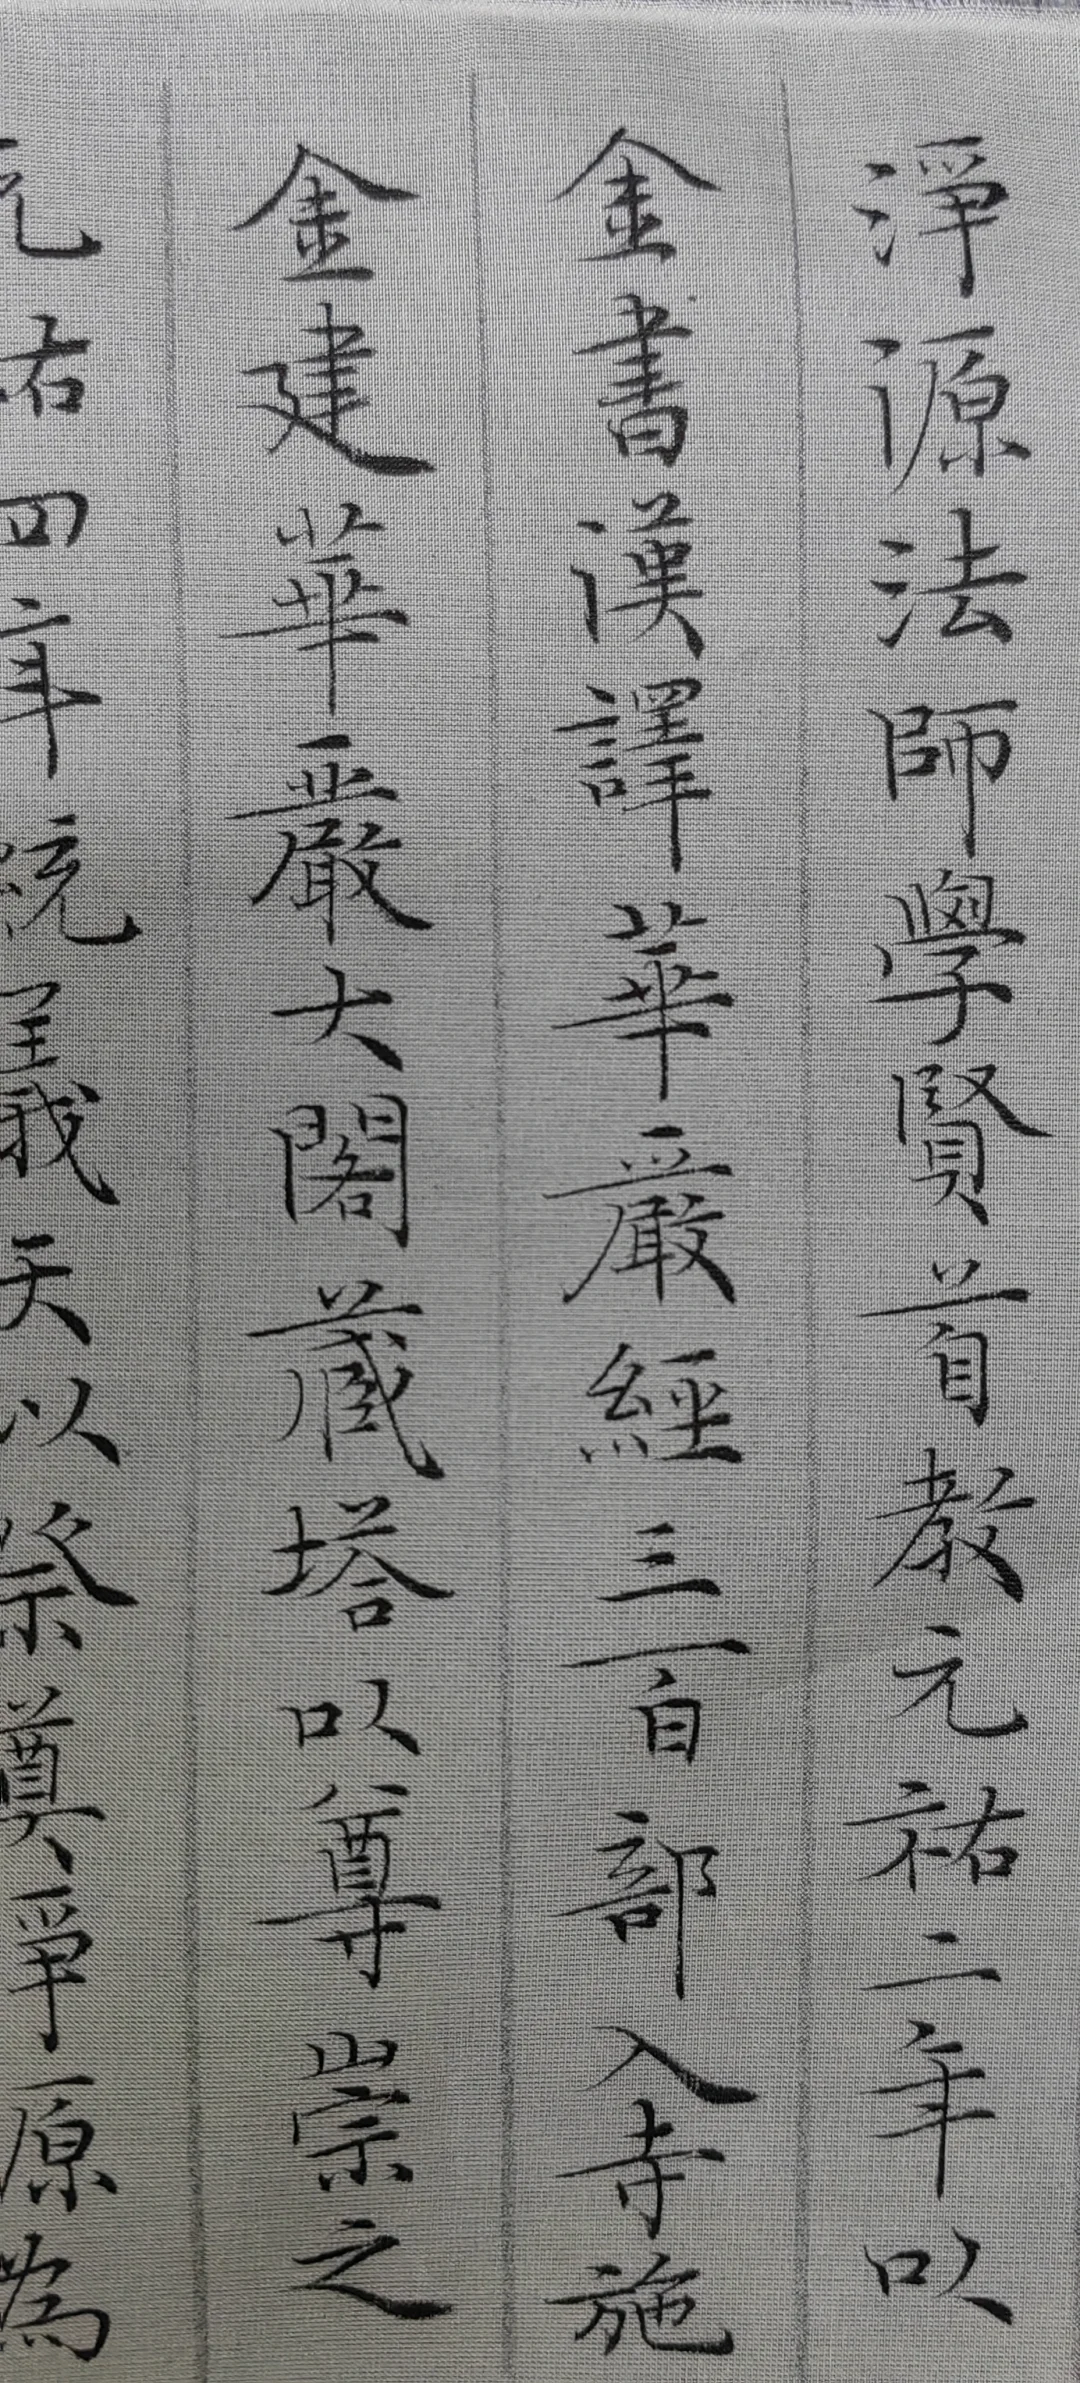 淨源法師學賢首教元祐二年以
金書漢譯華嚴經三百部入寺施
金建華嚴大閣藏塔以尊崇之
元祐四年統義天以祭奠淨源為